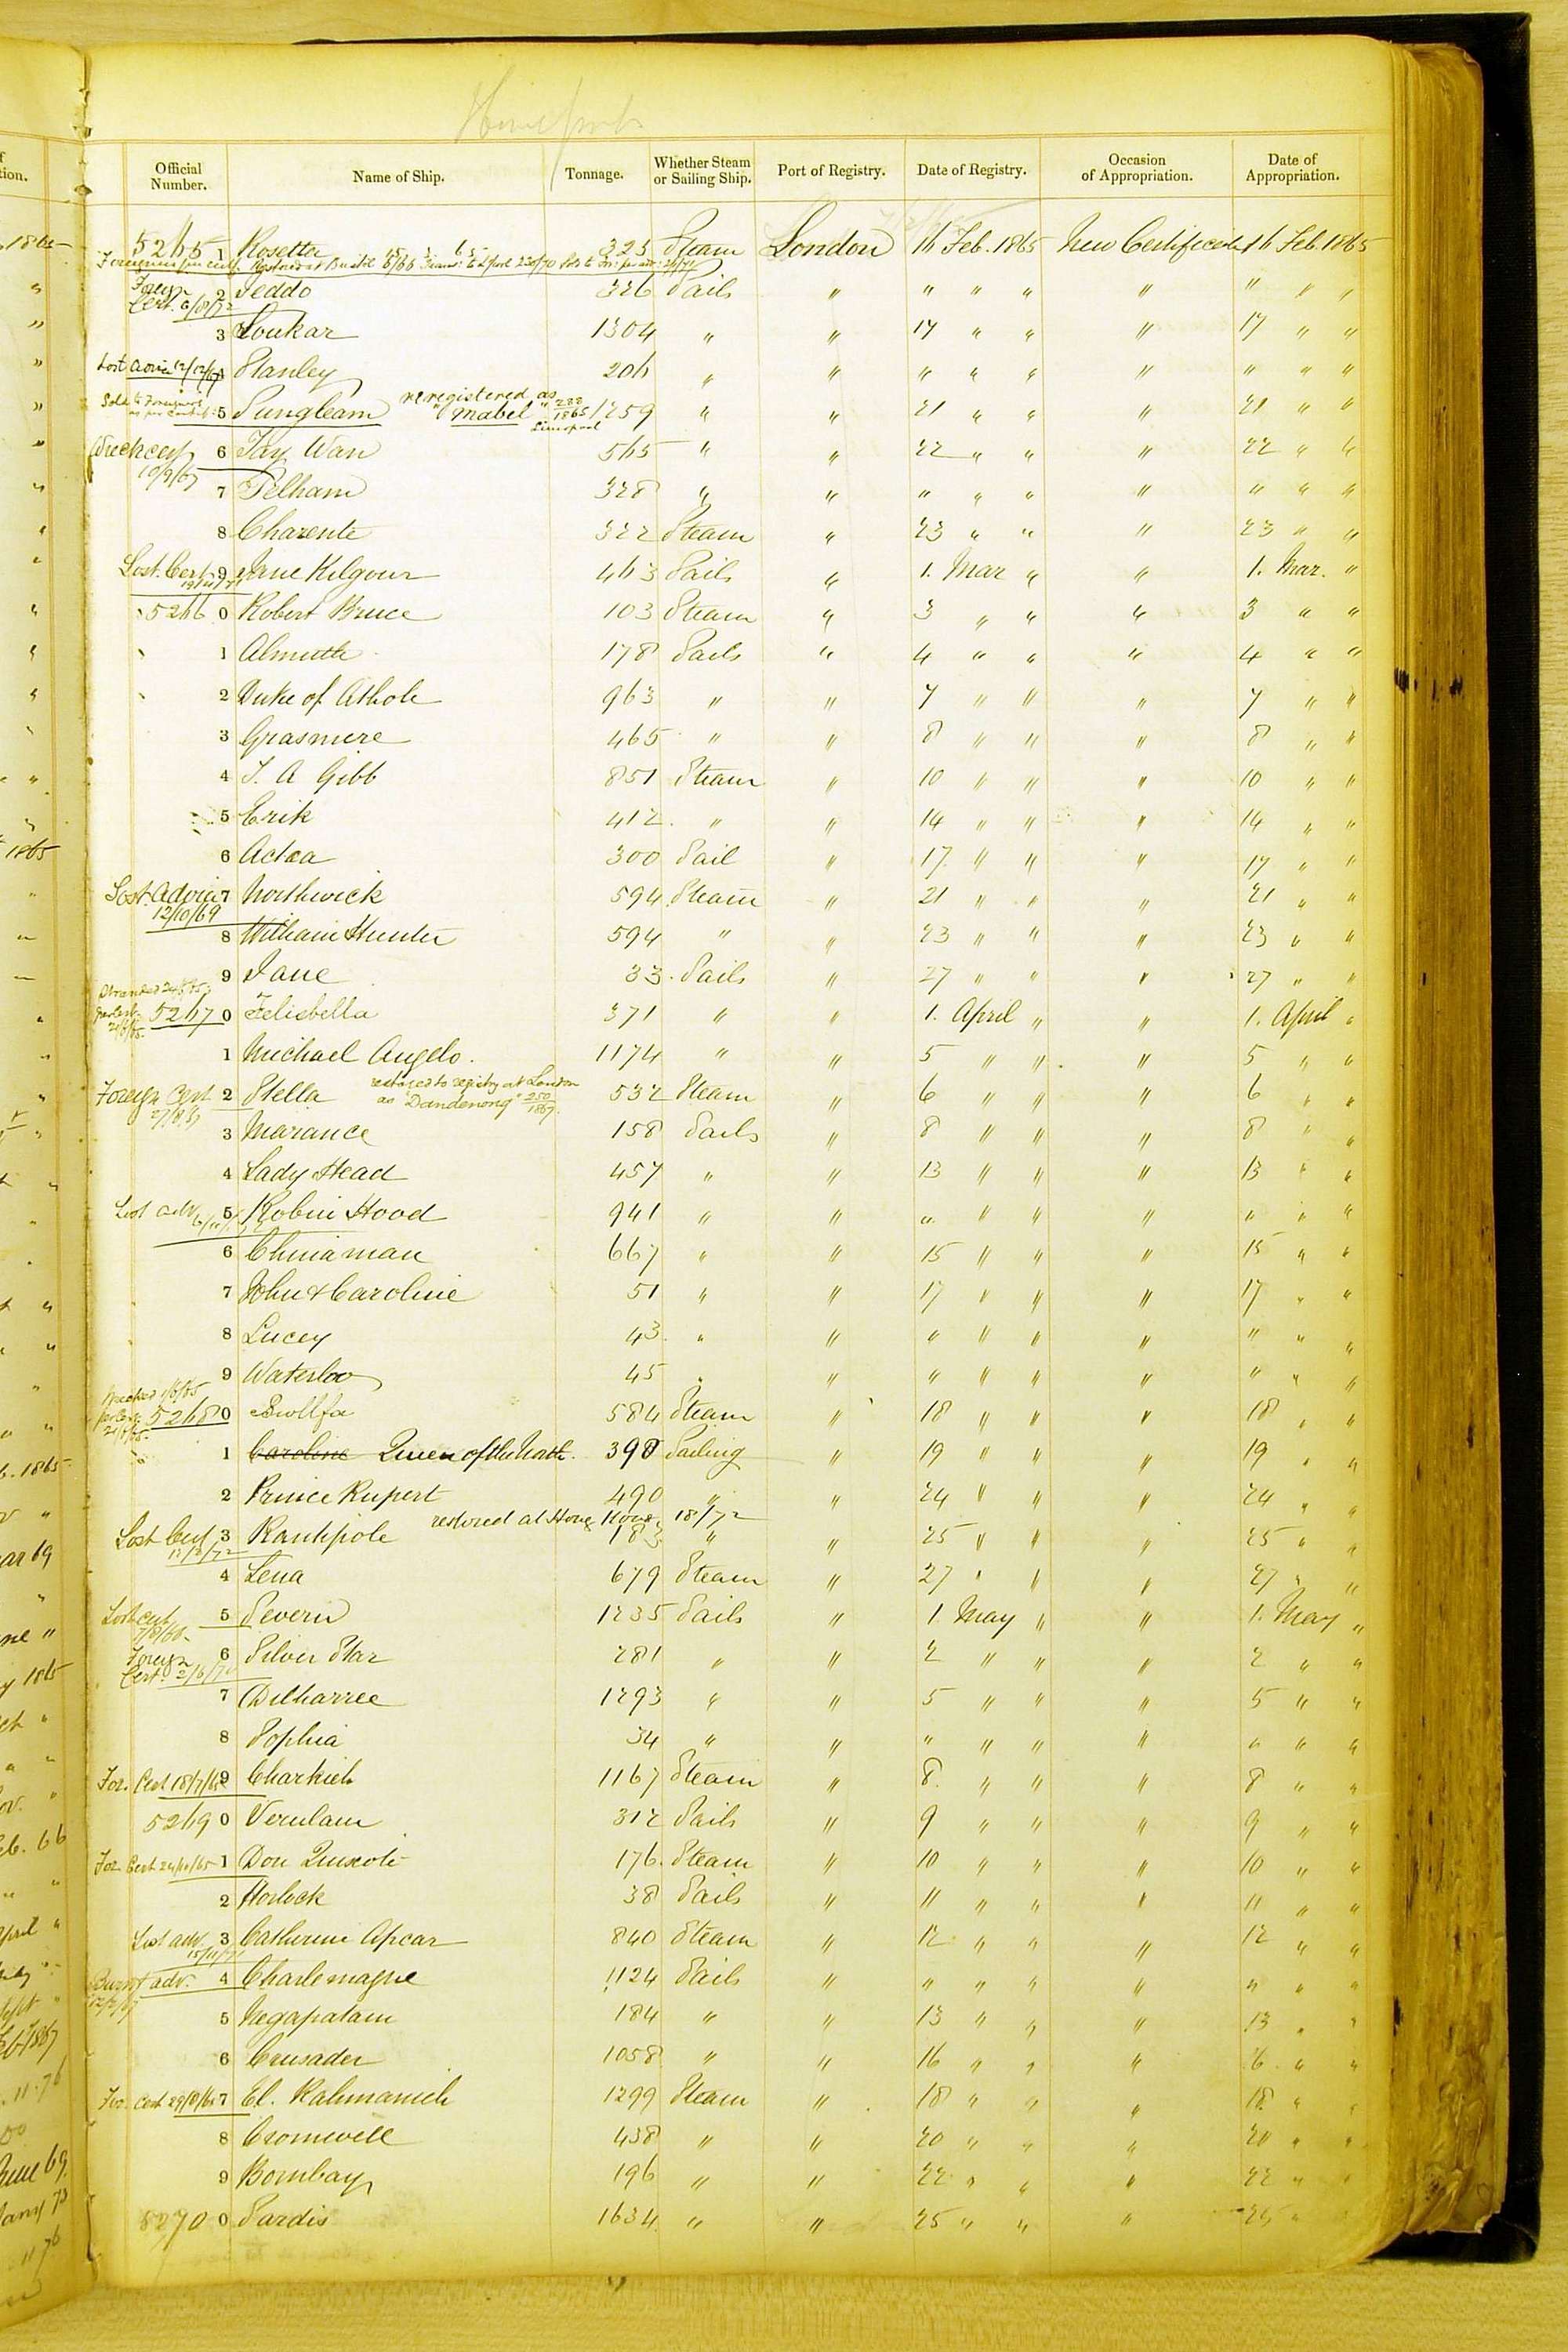 Official Number. Name of Ship. Tonnage. Whether Steam or Sailing Ship. Port of Registry. Date of Registry. Occasion of Appropriation. Date of Appropriation.
5265 1 Rosetta 323 Steam London 16 Feb. 1865 New Certificate 16 Feb. 1865
Foreign Cert. 6/8/72 2 Jeddo 326 Sails " " " " " " " "
3 1304 " " 17 " " " 17 " "
Lost Advice 12/12/67 4 Stanley 206 " " " " " " " " "
Sold to Foreigners 5 Sungleam reregistered as "Mabel" 288/1865 Liverpool 1259 " " 21 " " " 21 " "
Wreck cert 10/9/67 6 Tay Wan 565 " " 22 " " " 22 " "
7 Pelham 328 " " " " " " " " "
8 Charente 322 Steam " 23 " " " 23 " "
Lost. Cert 9 Jane Kilgour 463 Sails " 1. Mar " " 1. Mar. "
5266 0 Robert Bruce 103 Steam " 3 " " " 3 " "
1 178 Sails " 4 " " " 4 " "
2 Duke of Athole 963 " " 7 " " " 7 " "
3 Grasmere 465 " " 8 " " " 8 " "
4 T. A Gibb 851 Steam " 10 " " " 10 " "
5 Erik 412 " " 14 " " " 14 " "
6 Actaea 300 Sail " 17 " " " 17 " "
Lost. Advice 12/10/69 7 Northwick 594 Steam " 21 " " " 21 " "
8 William Hunter 594 " " 23 " " " 23 " "
9 Jane 33 Sails " 27 " " " 27 " "
Stranded 5267 0 Felisbella 371 " " 1. April " " 1. April "
1 Michael Angelo. 1174 " " 5 " " " 5 " "
Foreign Cert 2 Stella restored to registry at London as "Dandenong" 250/1867. 532 Steam " 6 " " " 6 " "
3 Marance 158 Sails " 8 " " " 8 " "
4 Lady Head 457 " " 13 " " " 13 " "
Lost adv. 5 Robin Hood 941 " " " " " " " " "
6 Chinaman 667 " " 15 " " " 15 " "
7 John & Caroline 51 " " 17 " " " 17 " "
8 Lucey 43 " " " " " " " " "
9 Waterloo 45 " " " " " " " " "
Wrecked 5268 0 584 Steam " 18 " " " 18 " "
1 Caroline Queen of the North. 398 Sailing " 19 " " " 19 " "
2 Prince Rupert 490 " " 24 " " " 24 " "
restored at Hong Kong 18/72
Lost Cert 3 Rantipole 183 " " 25 " " " 25 " "
4 Lena 679 Steam " 27 " " " 27 " "
Lost cert 5 Severn 1235 Sails " 1. May " " 1. May "
Foreign Cert. 6 Silver Star 281 " " 2 " " " 2 " "
7 Dilharree 1293 " " 5 " " " 5 " "
8 Sophia 34 " " " " " " " " "
For. Cert 9 Charkieh 1167 Steam " 8. " " " 8 " "
5269 0 Verulam 312 Sails " 9 " " " 9 " "
For. Cert 24/10/65 1 Don Quixote 176 Steam " 10 " " " 10 " "
2 Horlock 38 Sails " 11 " " " 11 " "
Lost adv. 3 Catherine Apcar 840 Steam " 12 " " " 12 " "
Burnt adv. 4 Charlemagne 1124 Sails " " " " " " " "
5 Negapatam 184 " " 13 " " " 13 " "
6 Crusader 1058 " " 16 " " " 16 " "
For. Cert 7 El. Rahmanieh 1299 Steam " 18 " " " 18 " "
8 Cromwell 438 " " 20 " " " 20 " "
9 Bombay 196 " " 22 " " " 22 " "
5270 0 Sardis 1634 " " 25 " " " 25 " "